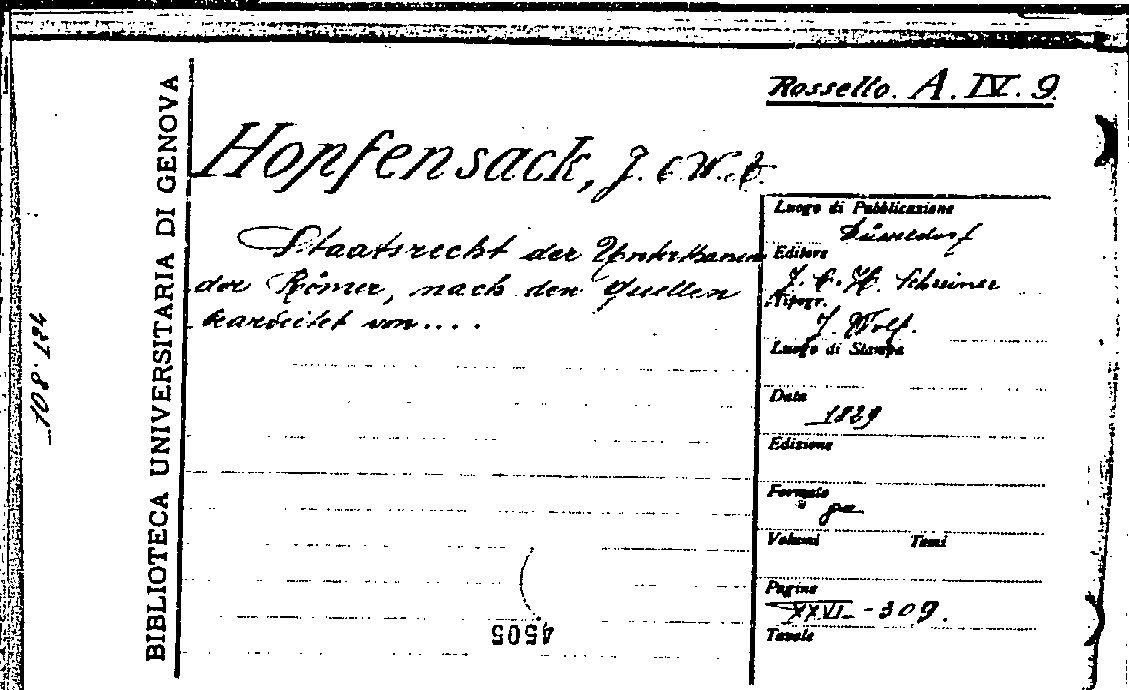 Rossello. A. IV. 9.
Hopfensack, J. C. W. A.
Staatsrecht der Unterthanen
der Römer, nach den Quellen
bearbeitet von....
Luogo di Pubblicazione
Düsseldorf
Editore
J. E. H. Schreiner
Tipogr.
J. Wolf.
Luogo di Stampa
Data
1829
Edizione
Formato
Volumi Tomi
Pagine
XXVI - 309.
Tavole
BIBLIOTECA UNIVERSITARIA DI GENOVA
4505